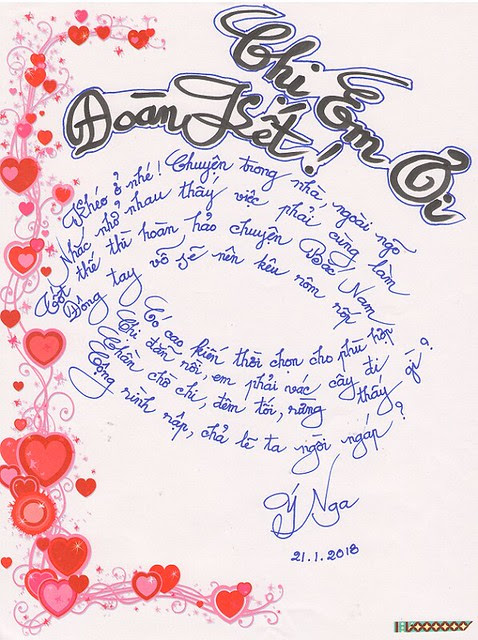 Chị Em Ơi
Đoàn Kết!
Khéo ở nhé! Chuyện trong nhà, ngoài ngõ
Nhắc nhở nhau thấy việc phải cùng làm
Tốt thế thì hoàn hảo chuyện Bắc Nam
Đông tay vỗ sẽ nên kêu rôm rốp
Có cao kiến thời chọn cho phù hợp
Chị đốn rồi, em phải vác cây đi
Chần chờ chi, đêm tối, rừng thấy gì?
Cộng rình rập, chả lẽ ta ngồi ngáp?
Ý Nga
21.1.2018